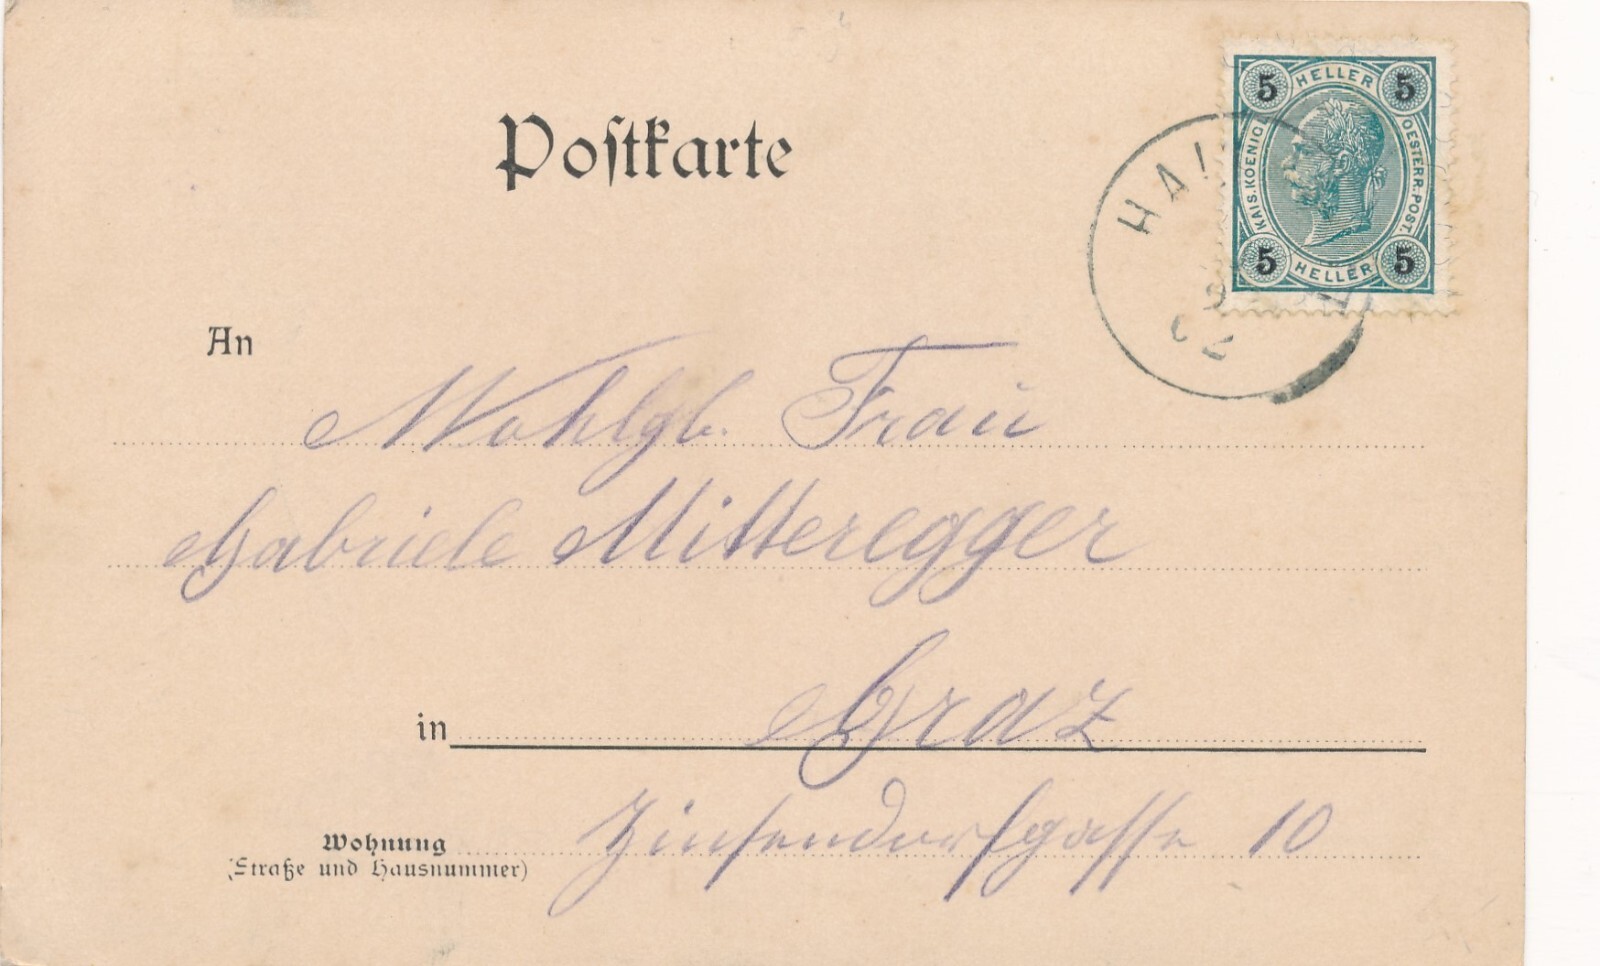 Postkarte
5 HELLER 5
KAIS. KOENIG. OESTERR. POST.
5 HELLER 5
HAI
9
02
An
Wohlgb. Frau
Gabriele Mitteregger
in Graz
Wohnung Zinsendorfgasse 10
(Straße und Hausnummer)